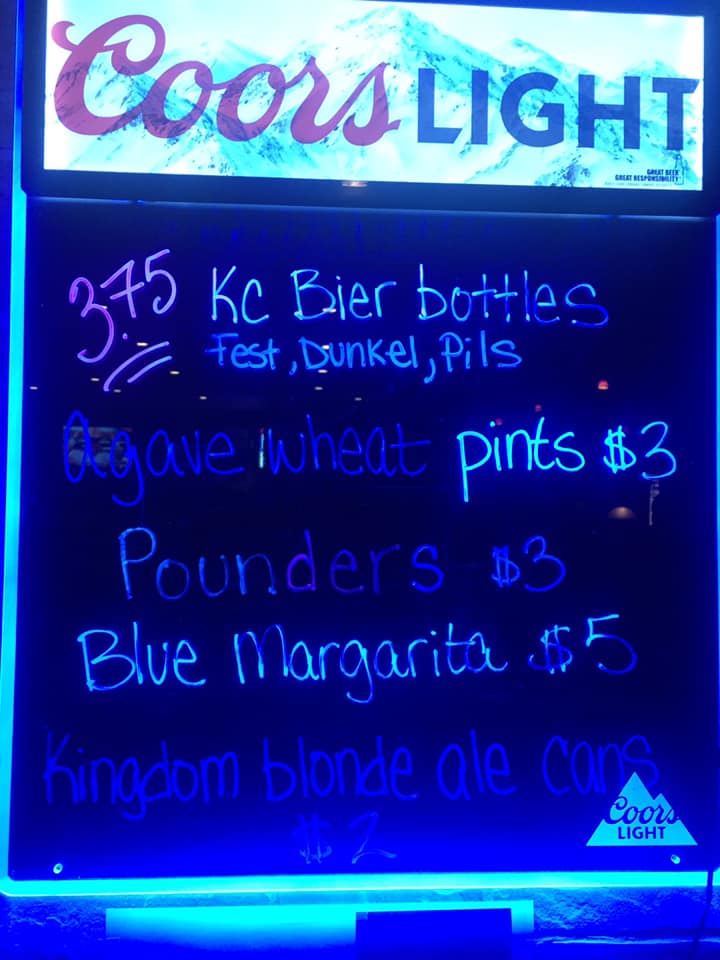 Coors LIGHT
GREAT BEER
GREAT RESPONSIBILITY
3.75 KC Bier bottles
Fest, Dunkel, Pils
Agave wheat pints $3
Pounders $3
Blue Margarita $5
Kingdom blonde ale cans
$2
Coors
LIGHT